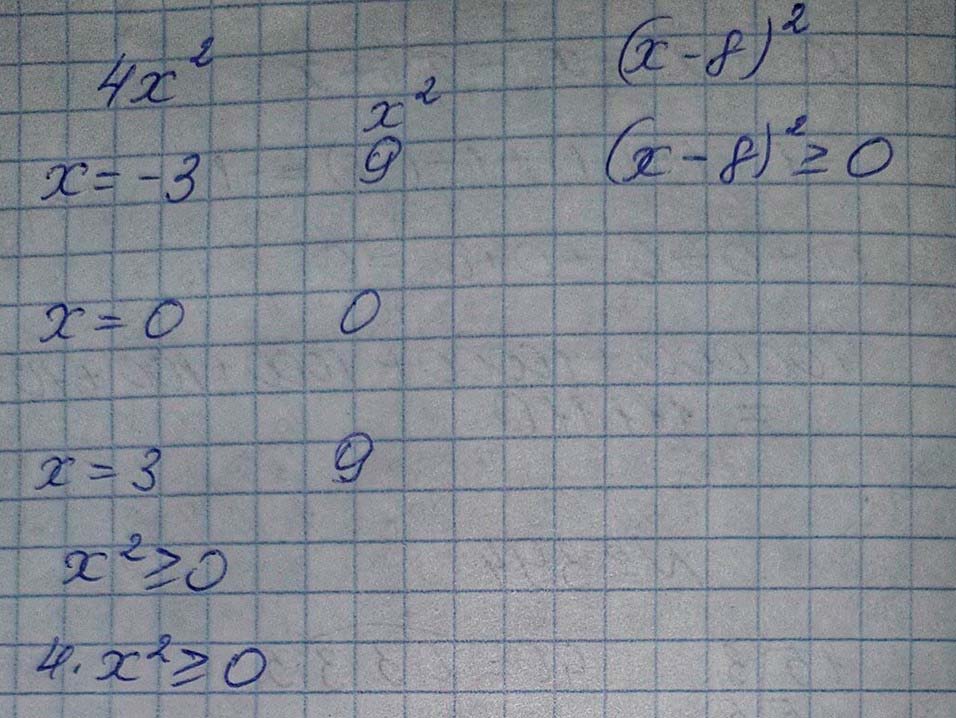 4x²
x²
x = -3 9
x = 0 0
x = 3 9
x² ≥ 0
4 · x² ≥ 0
(x - 8)²
(x - 8)² ≥ 0